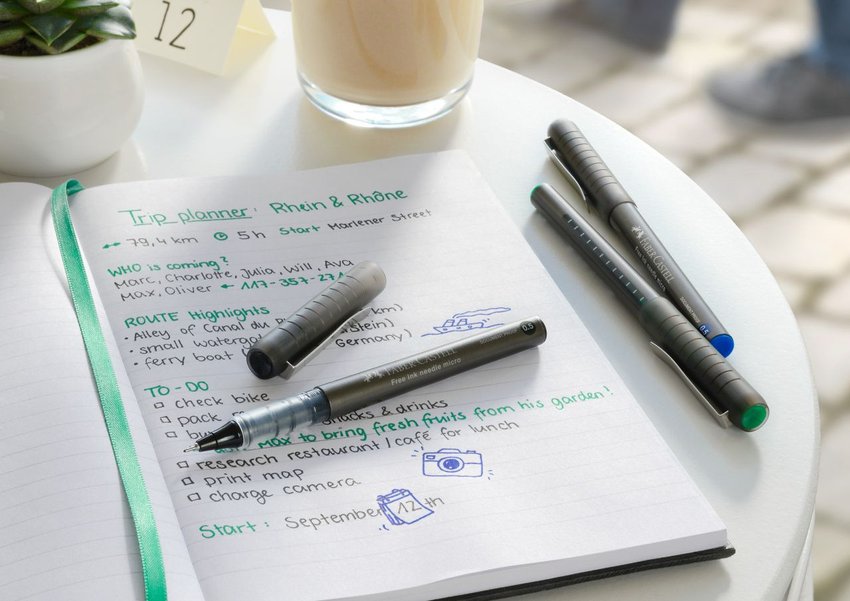 12
Trip planner: Rhein & Rhône
79,4 km 5h Start Marlener Street
WHO is coming?
Marc, Charlotte, Julia, Will, Ava
Max, Oliver 117-357-27
ROUTE Highlights
• Alley of Canal du km)
• small waterga stein)
• ferry boat Germany)
TO-DO
check bike
pack snacks & drinks
bu
MAX to bring fresh fruits from his garden!
research restaurant / café for lunch
print map
charge camera
Start: September 12th
FABER-CASTELL
Free Ink needle micro
0.5
FABER-CASTELL
0.5